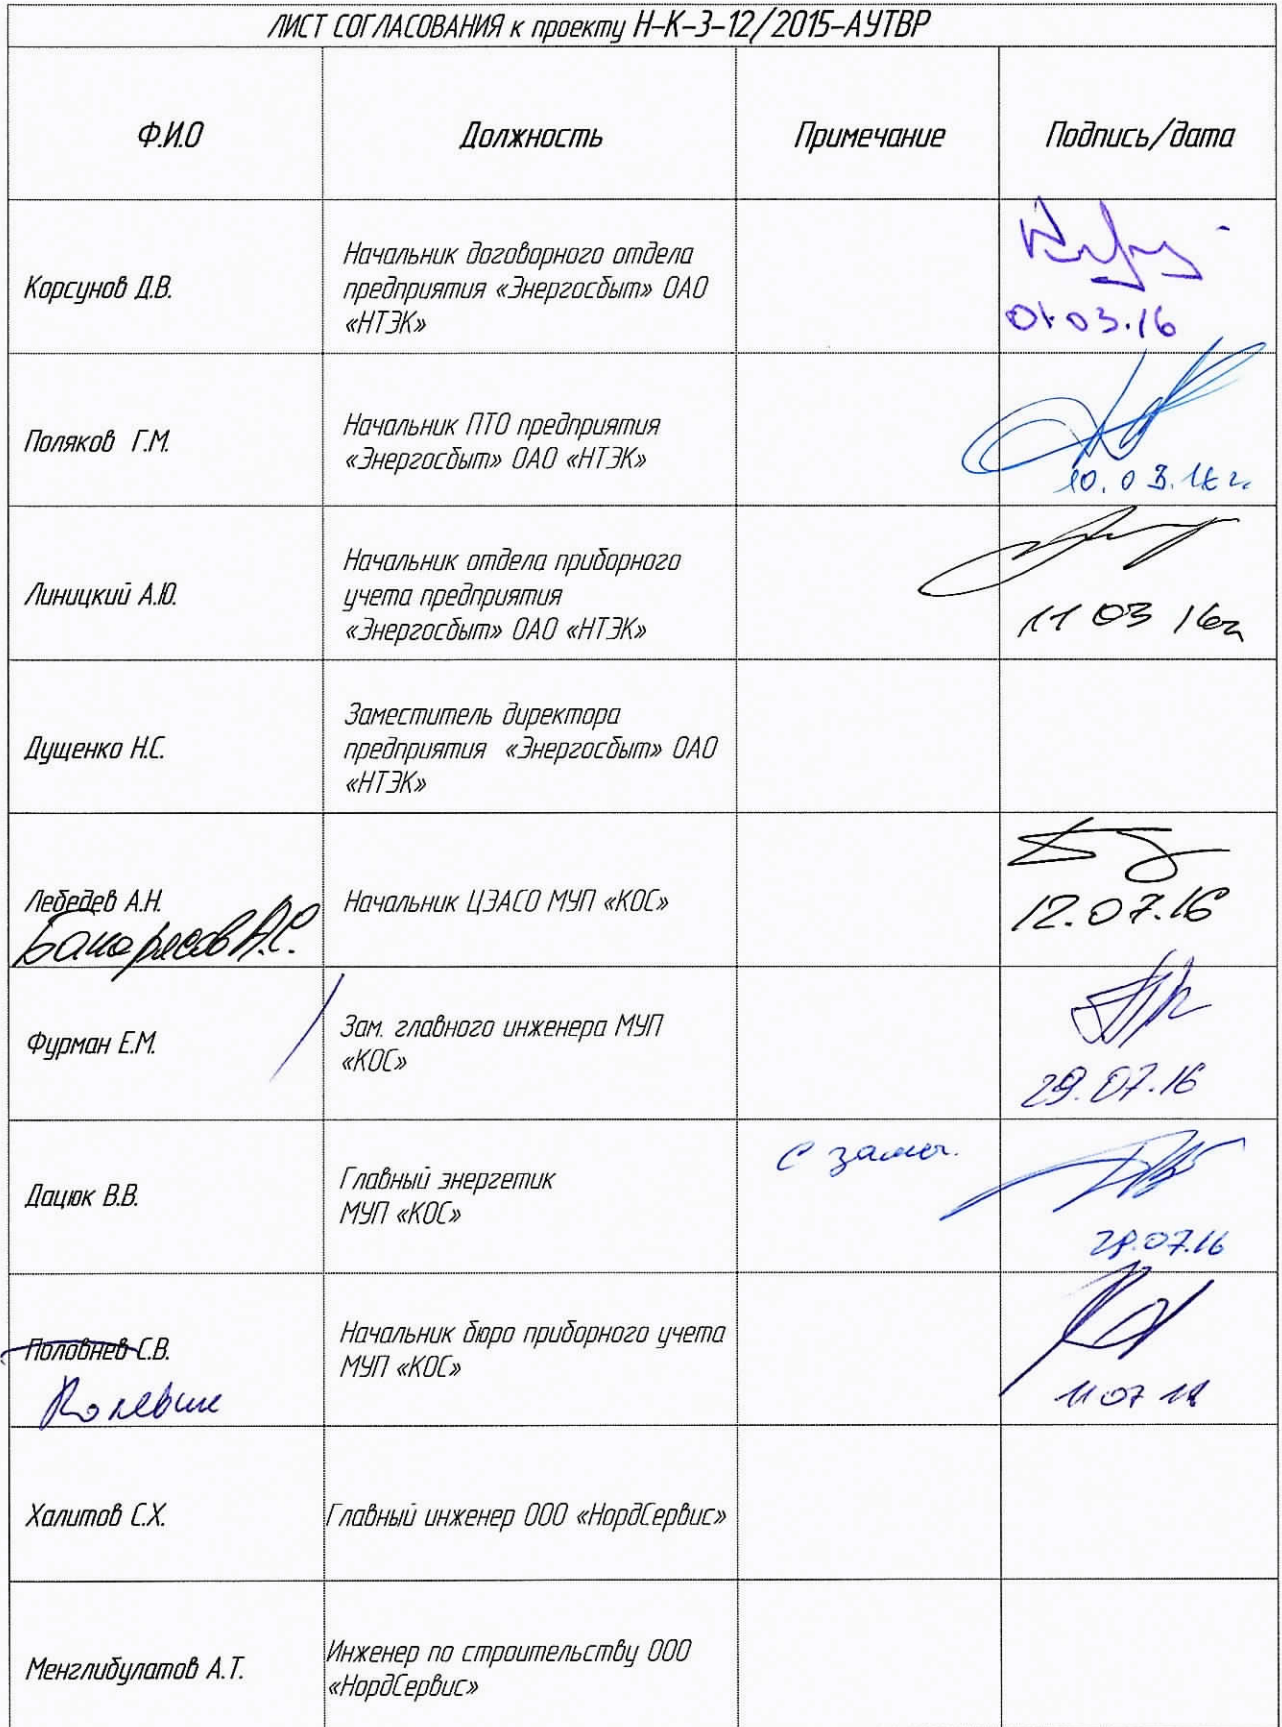 ЛИСТ СОГЛАСОВАНИЯ к проекту Н-К-3-12/2015-АУТВР
Ф.И.О Должность Примечание Подпись/дата
Корсунов Д.В.
Начальник договорного отдела
предприятия «Энергосбыт» ОАО
«НТЭК»
01.03.16
Поляков Г.М.
Начальник ПТО предприятия
«Энергосбыт» ОАО «НТЭК»
10.03.16 г.
Линицкий А.Ю.
Начальник отдела приборного
учета предприятия
«Энергосбыт» ОАО «НТЭК»
11 03 16г
Дущенко Н.С.
Заместитель директора
предприятия «Энергосбыт» ОАО
«НТЭК»
Лебедев А.Н.
Начальник ЦЭАСО МУП «КОС»
12.07.16
Фурман Е.М.
Зам. главного инженера МУП
«КОС»
29.07.16
Дацюк В.В.
Главный энергетик
МУП «КОС»
с замеч.
29.07.16
Половнев С.В.
Начальник бюро приборного учета
МУП «КОС»
11 07
Халитов С.Х.
Главный инженер ООО «НордСервис»
Менглибулатов А.Т.
Инженер по строительству ООО
«НордСервис»